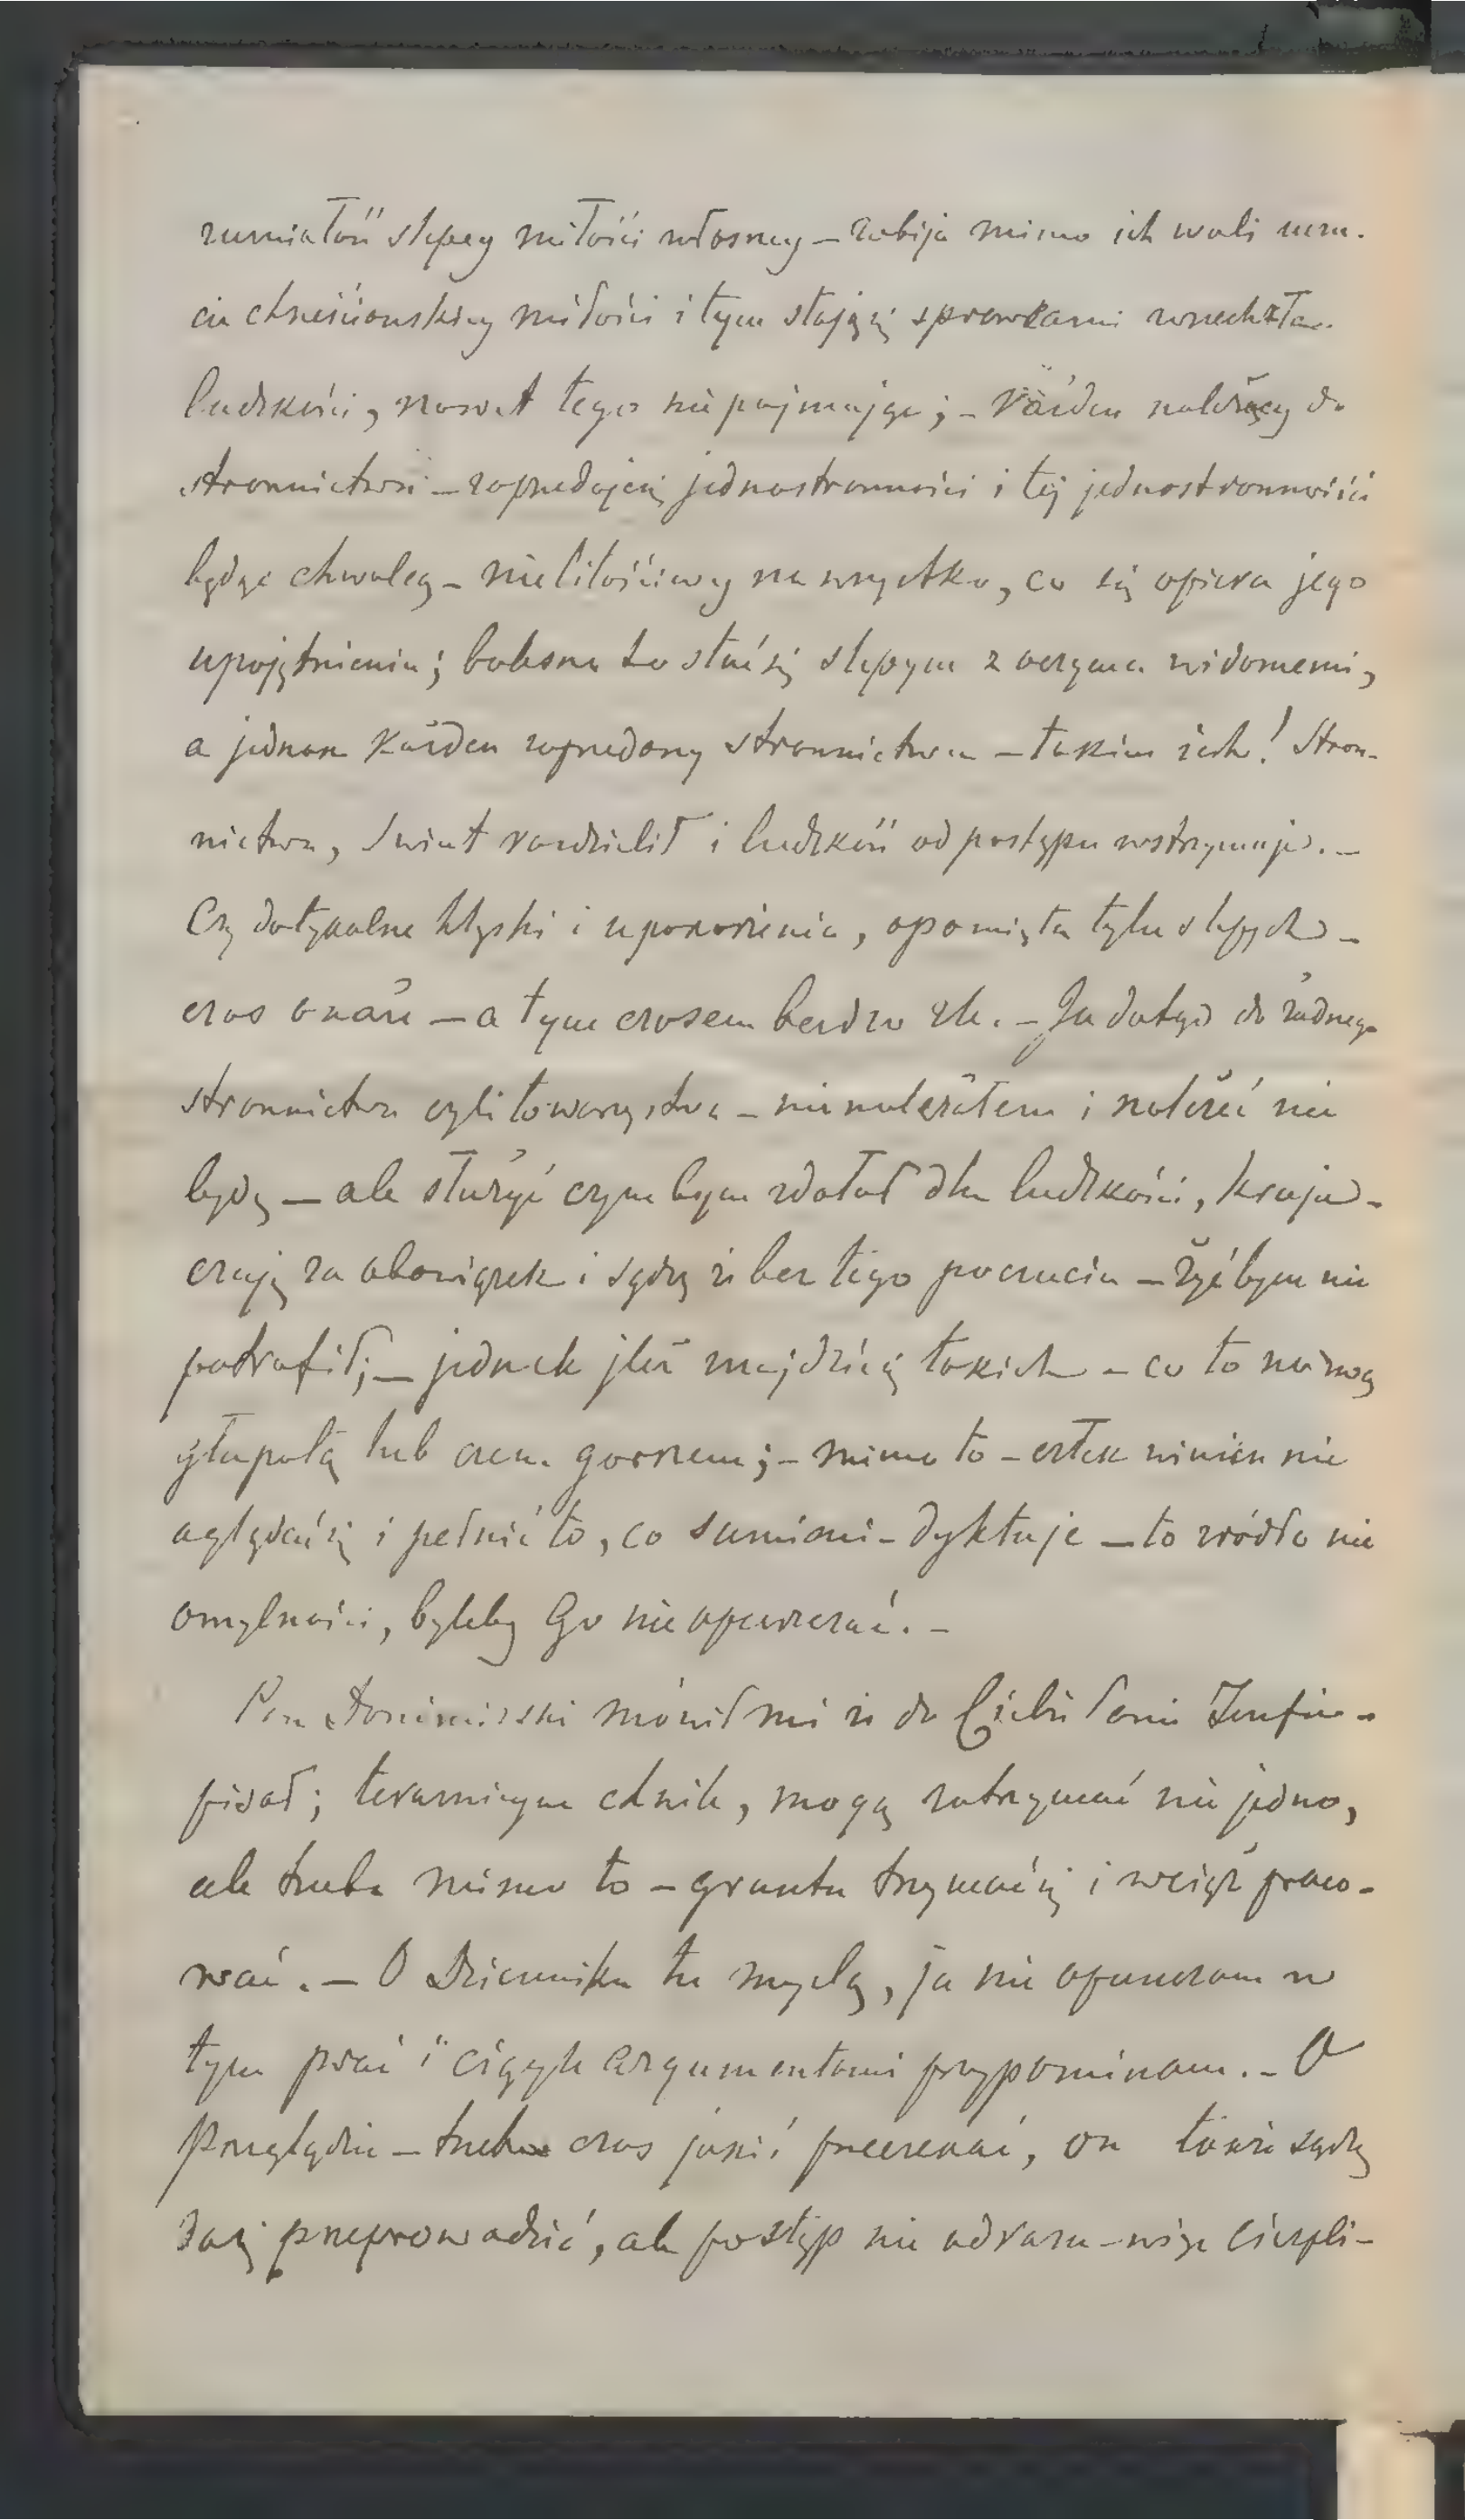 zumiałość ślepey miłości własney – zabija mimo ich woli uczu-
cie chrześcianskiey miłości i tym stają się sprawcami wszech zła
ludzkości, nawet tego nie pojmując; – Każden należący do
stronnictwa – zaprzedaje się jednostronności i tej jednostronności
będąc chwalcą – nielitościwy na wszystko, co się opiera jego
upojętnieniu; bolesna to stać się ślepym z oczyma widomemi,
a jednak każden zaprzedany stronnictwu – takim jest! Stron-
nictwa, świat rozdzielił i ludzkość od postępu wstrzymuje. –
Czy dotykalne klęski i upokorzenia, opamięta tylu ślepych –
czas okaże – a tym czasem bardzo źle. – Ja dotąd do żadnego
stronnictwa czyli towarzystwa – nie należałem i należeć nie
będę – ale służyć czym bym zdołał dla ludzkości, kraju –
czuję za obowiązek i sądzę że bez tego poczucia – żyć bym nie
potrafił; – jednak jleż znajdzie się takich – co to nazwą
głupotą lub czem gorszem; – mimo to – człek winien nie
oglądać się i pełnić to, co sumienie – dyktuje – to źródło nie
omylności, byleby Go nie opuszczać. –
Pan mówił mi że do Ciebie
pisał; teraźnieyże chwile, mogą zatrzymać nie jedno,
ale trzeba mimo to – gruntu trzymać się i wciąż praco-
wać. – O Dzienniku tu myślą, ja nie opuszczam w
tym prac i ciągle argumentami przypominam. – O
Przeglądzie – trzeba czas jakiś przeczekać, on także sądzę
da się przeprowadzić, ale postęp nie odrazu – więc cierpli-